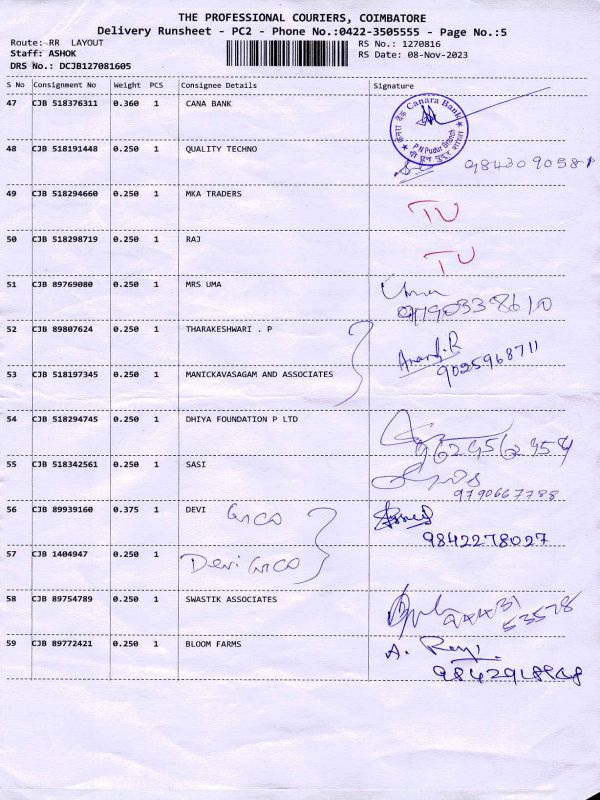 THE PROFESSIONAL COURIERS, COIMBATORE
Delivery Runsheet - PC2 - Phone No.:0422-3505555 - Page No.:5
Route: RR LAYOUT
RS No.: 1270816
Staff: ASHOK
RS Date: 08-Nov-2023
DRS No.: DCJB127081605
S No Consignment No Weight PCS Consignee Details Signature
47 CJB 518376311 0.360 1 CANA BANK
Canara Bank
P N Pudur Branch
48 CJB 518191448 0.250 1 QUALITY TECHNO
9843090581
49 CJB 518294660 0.250 1 MKA TRADERS TU
50 CJB 518298719 0.250 1 RAJ TU
51 CJB 89769080 0.250 1 MRS UMA Uma
9790338610
52 CJB 89807624 0.250 1 THARAKESHWARI . P Anand.R
9025968711
53 CJB 518197345 0.250 1 MANICKAVASAGAM AND ASSOCIATES
54 CJB 518294745 0.250 1 DHIYA FOUNDATION P LTD
9629562954
55 CJB 518342561 0.250 1 SASI
9790667788
56 CJB 89939160 0.375 1 DEVI
9842278027
57 CJB 1404947 0.250 1 Devi
58 CJB 89754789 0.250 1 SWASTIK ASSOCIATES
53578
59 CJB 89772421 0.250 1 BLOOM FARMS A.